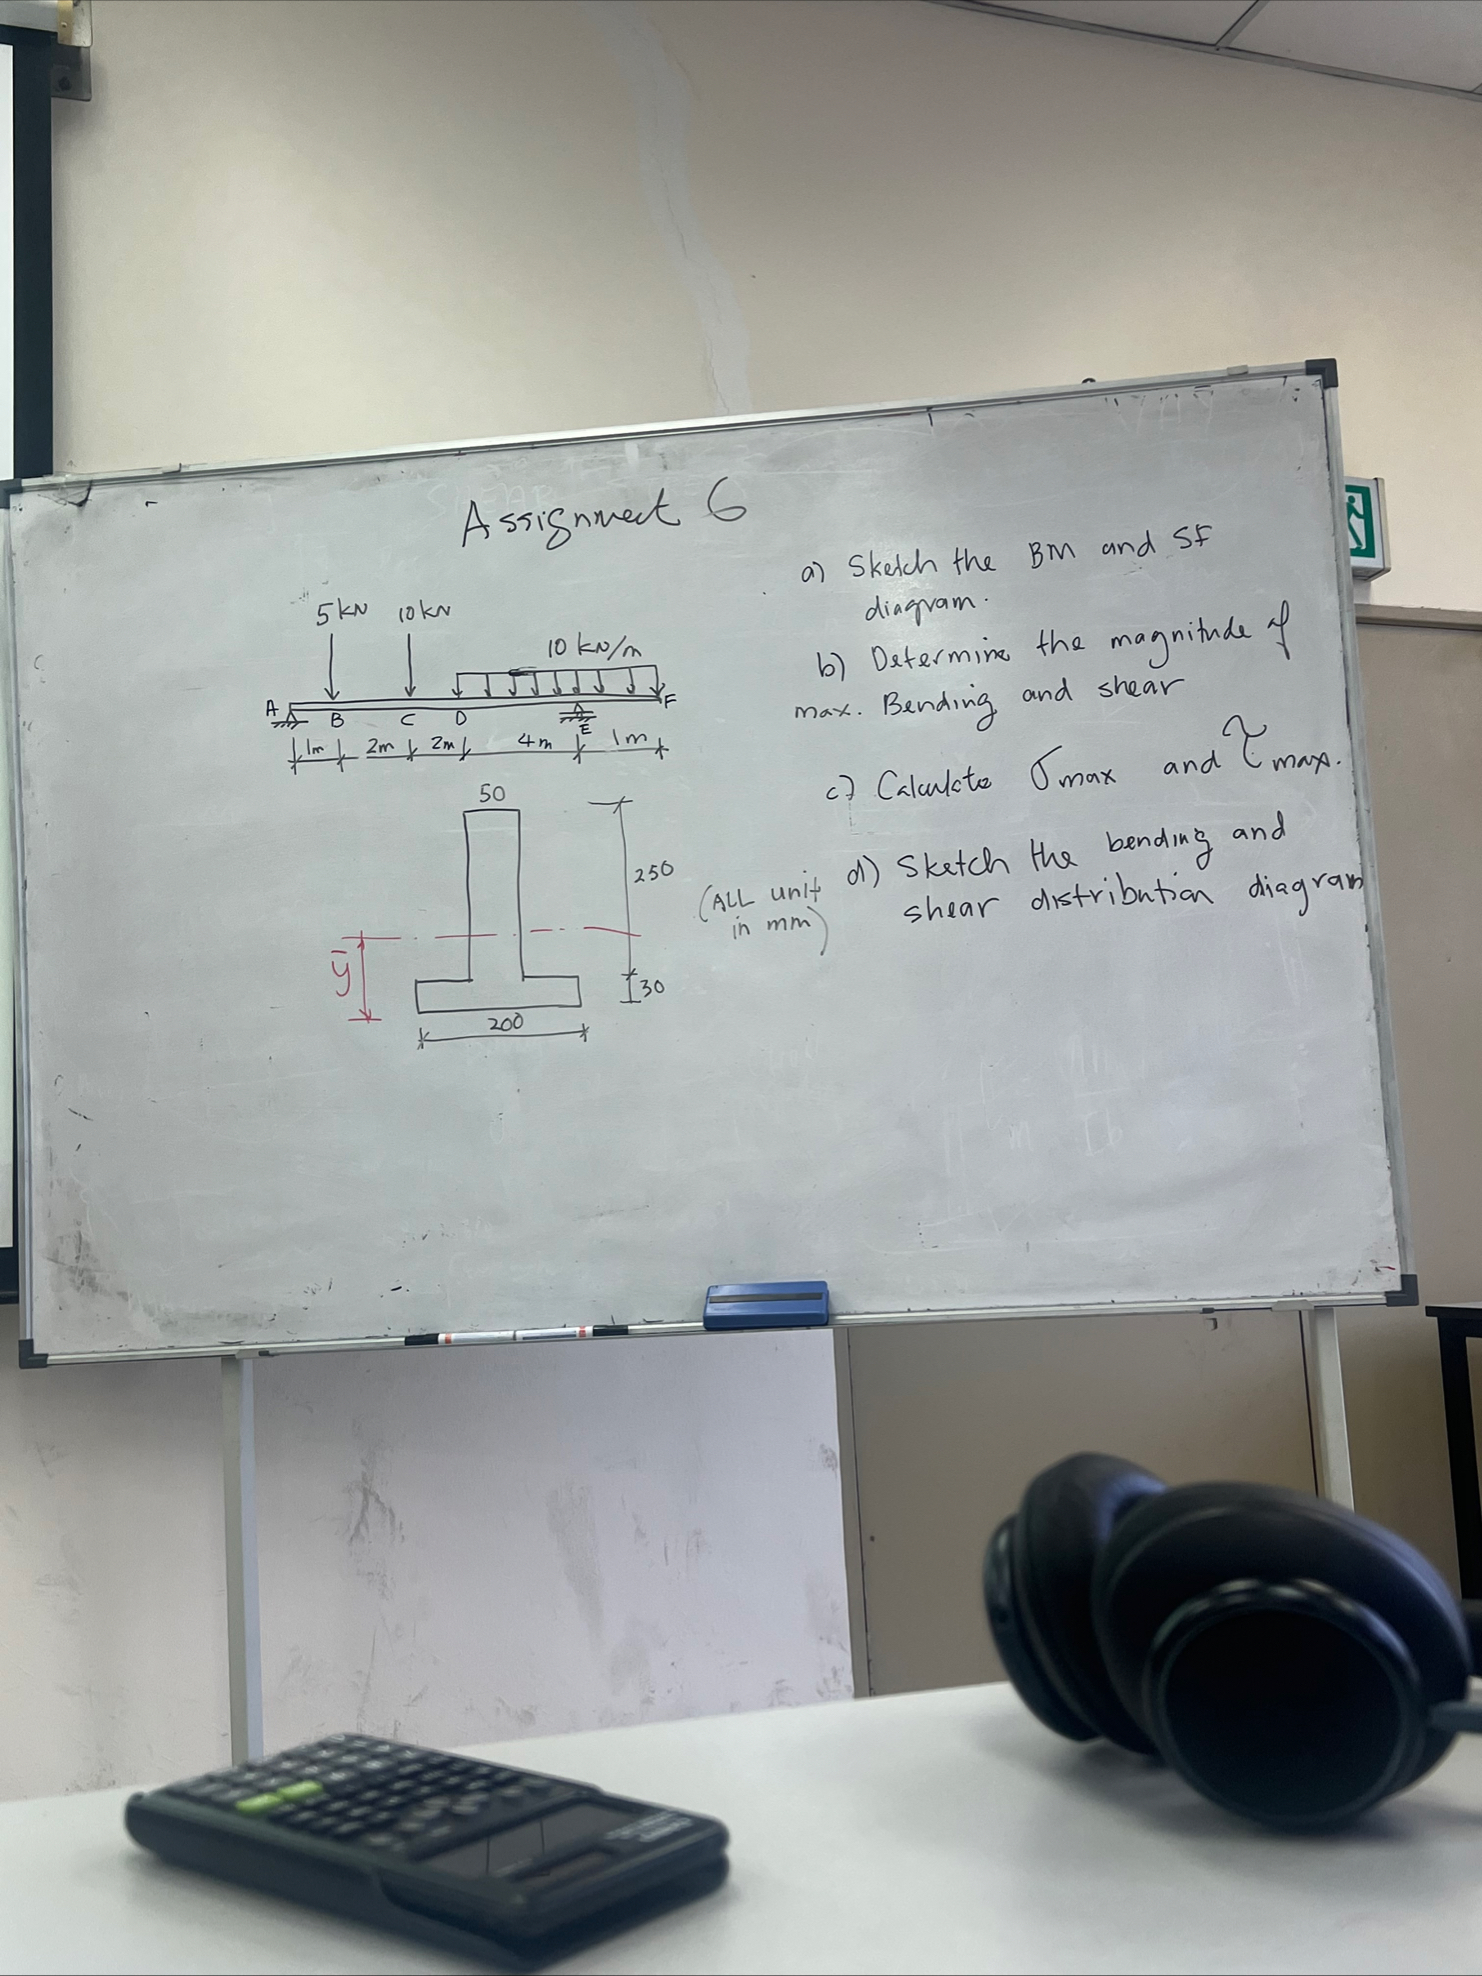 Assignment 6
5 kN 10 kN
10 kN/m
A B C D E F
1m 2m 2m 4m 1m
50
250
ȳ
30
200
(ALL unit
in mm)
a) Sketch the BM and SF
diagram.
b) Determine the magnitude of
max. Bending and shear
c) Calculate σmax and τmax.
d) Sketch the bending and
shear distribution diagram